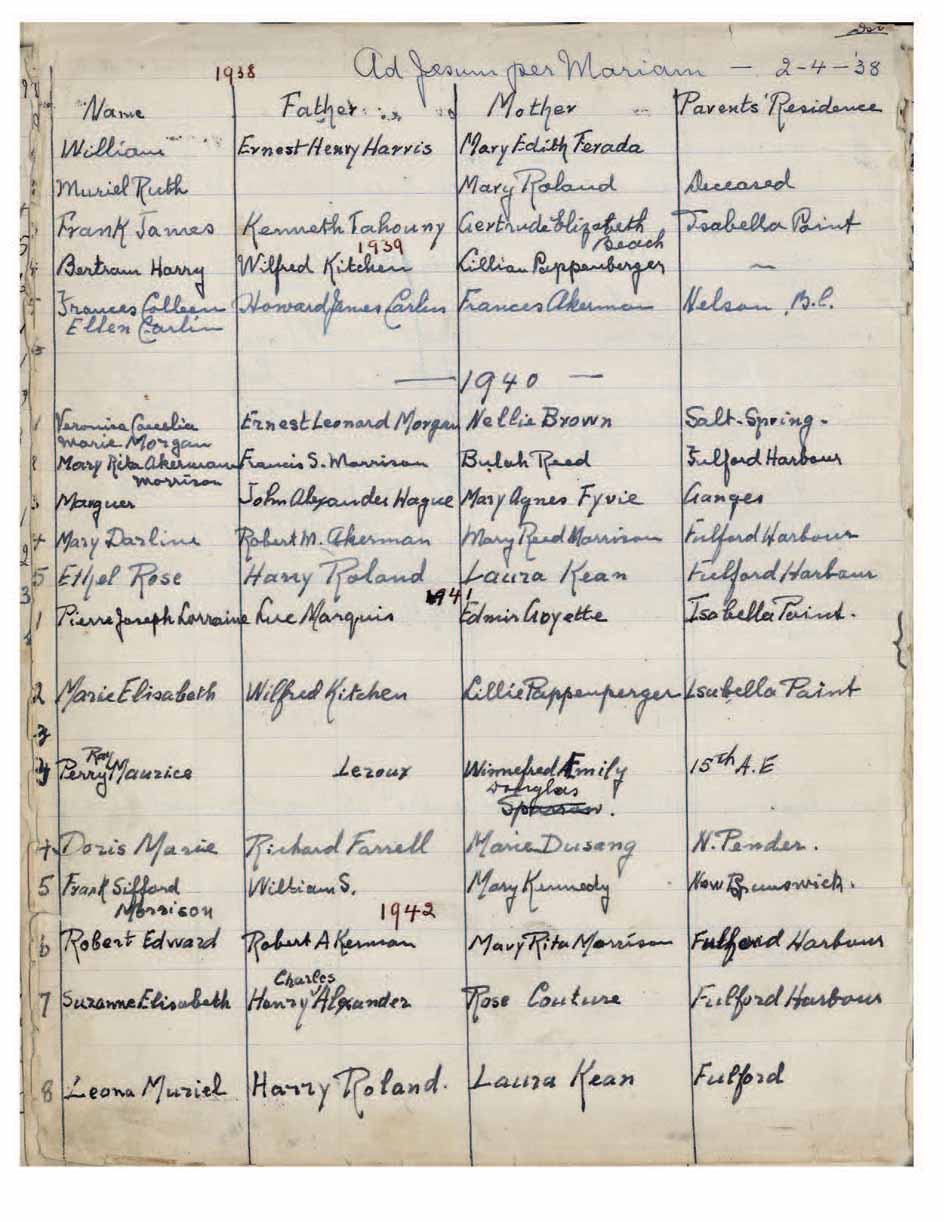 1938 Ad Jesum per Mariam — 2-4-'38
Name Father Mother Parents' Residence
William Ernest Henry Harris Mary Edith Ferada
Muriel Ruth Mary Roland Deceased
Frank James Kenneth Tahouny Gertrude Elizabeth Isabella Point
Beach
1939
4 Bertram Harry Wilfred Kitchen Lillian Pappenberger —
5 Frances Colleen Howard James Carlin Frances Akerman Nelson, B.C.
Ellen Carlin
— 1940 —
1 Veronica Caecelia Ernest Leonard Morgan Nellie Brown Salt-Spring.
Marie Morgan
Mary Rita Akerman Francis S. Morrison Bulah Reed Fulford Harbour
Morrison
3 Marguer John Alexander Hague Mary Agnes Fyvie Ganges
4 Mary Darline Robert M. Akerman Mary Reed Morrison Fulford Harbour
5 Ethel Rose Harry Roland Laura Kean Fulford Harbour
1941
1 Pierre Joseph Lorraine Luc Marquis Edmir Goyette Isabella Point.
2 Marie Elisabeth Wilfred Kitchen Lillie Pappenperger Isabella Point
3
Ray
3 Perry Maurice Leroux Winnefred Emily 15th A.E
Douglas
Sparrow.
4 Doris Marie Richard Farrell Marie Dusang N. Pender.
5 Frank Sifford William S. Mary Kennedy New Brunswick.
Morrison
1942
6 Robert Edward Robert Akerman Mary Rita Morrison Fulford Harbour
Charles
7 Suzanne Elisabeth Henry Alexander Rose Couture Fulford Harbour
8 Leona Muriel Harry Roland. Laura Kean Fulford